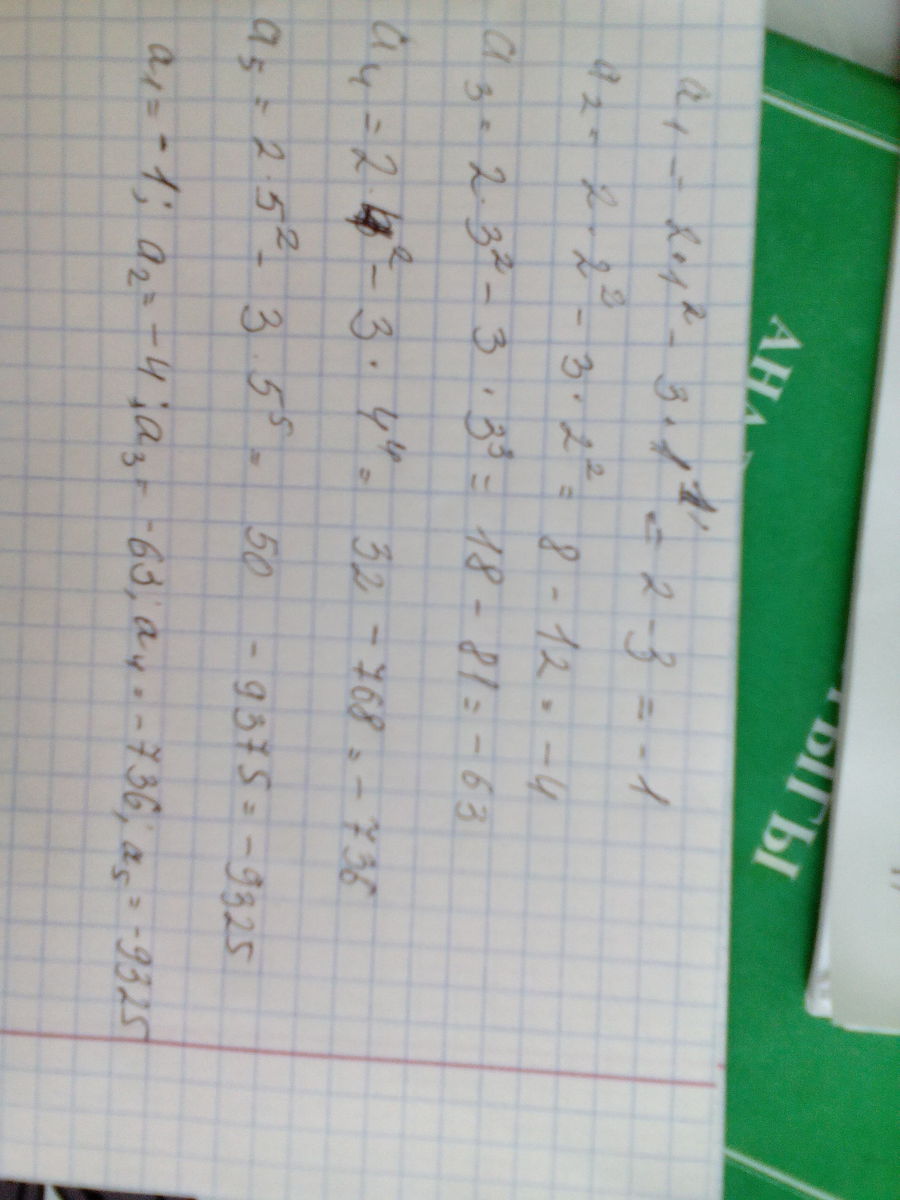 a₁ = 2·1² - 3·1¹ = 2 - 3 = -1
a₂ = 2·2² - 3·2² = 8 - 12 = -4
a₃ = 2·3² - 3·3³ = 18 - 81 = -63
a₄ = 2·4² - 3·4⁴ = 32 - 768 = -736
a₅ = 2·5² - 3·5⁵ = 50 - 9375 = -9325
a₁ = -1; a₂ = -4; a₃ = -63; a₄ = -736; a₅ = -9325